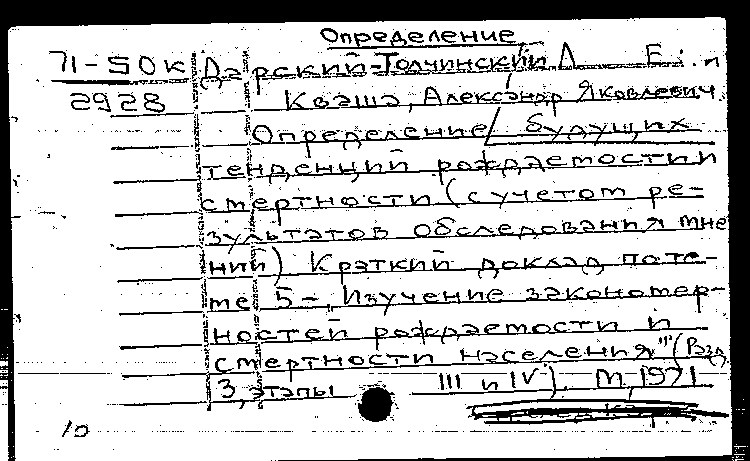 Определение
71-50к Дарский-Толчинский Л Е. и
2928 Кваша, Александр Яковлевич.
Определение / будущих
тенденций рождаемости и
смертности (с учетом ре-
зультатов обследования мне
ний) Краткий доклад по те-
ме 5-, Изучение закономер-
ностей рождаемости и
смертности населения" (Разд
3, этапы III и IV). М, 1971
10